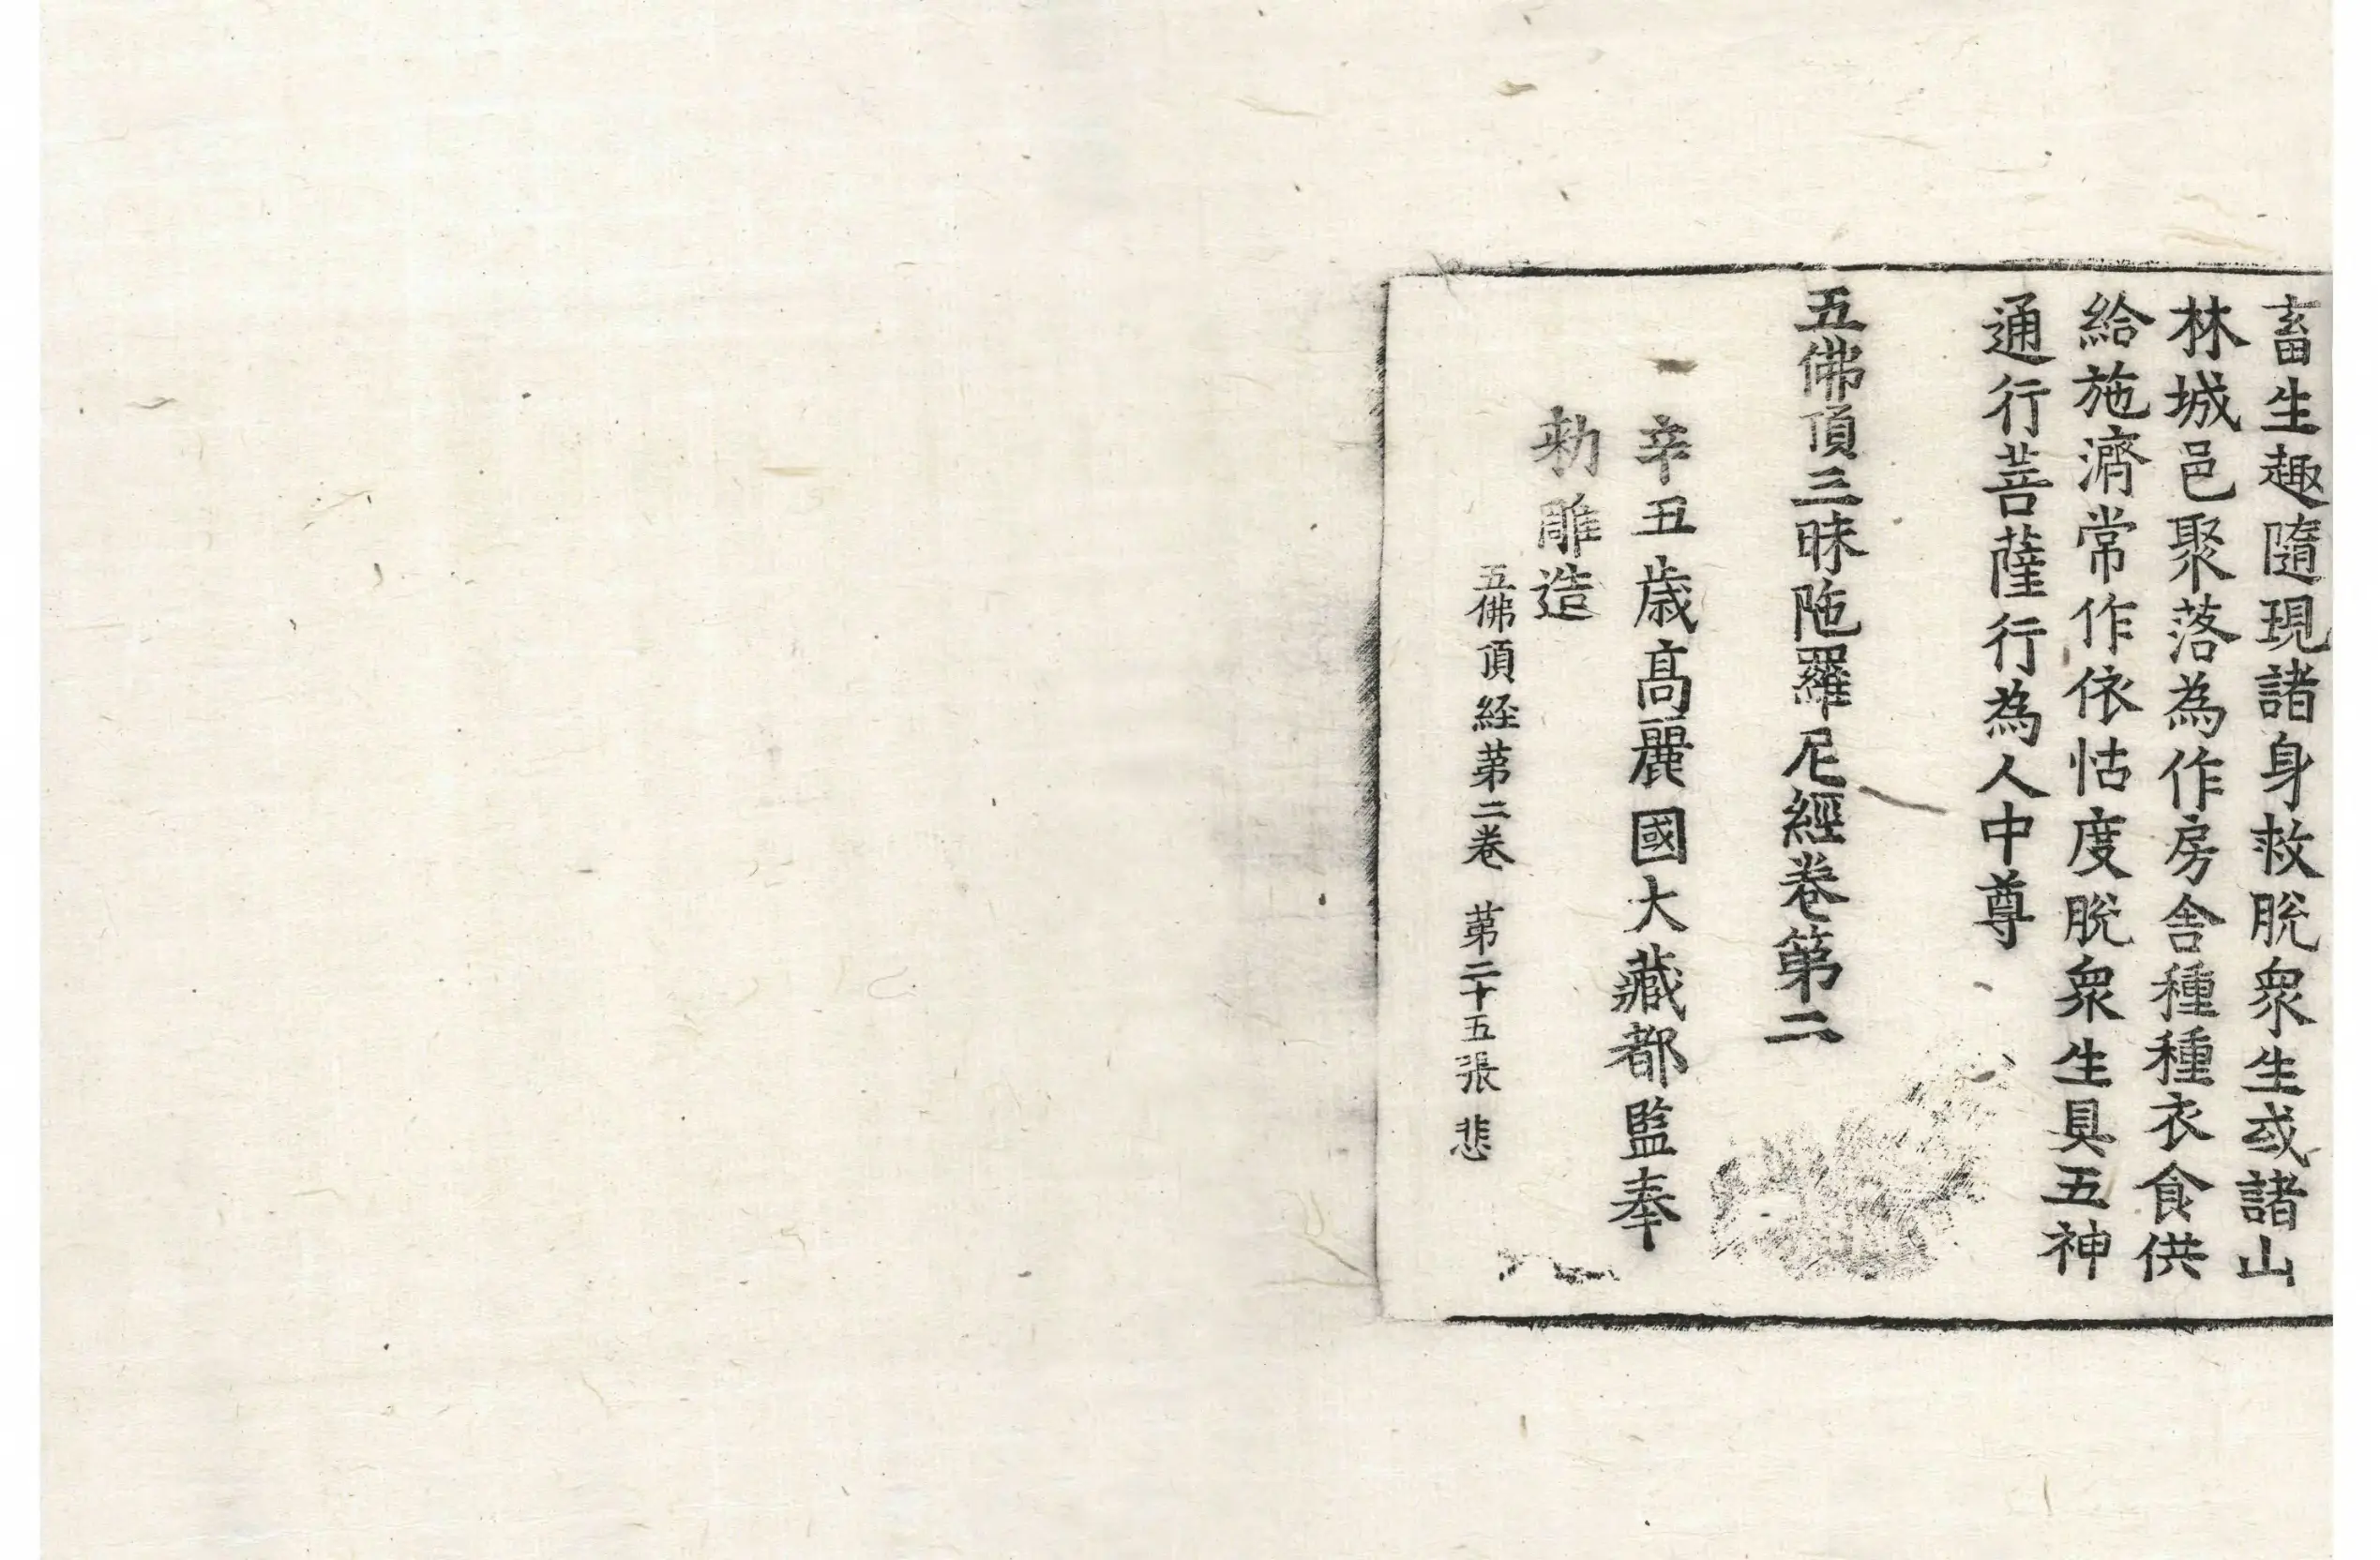 畜生趣隨現諸身救脫衆生或諸山
林城邑聚落為作房舍種種衣食供
給施濟常作依怙度脫衆生具五神
通行菩薩行為人中尊
五佛頂三昧陁羅尼經卷第二
辛丑歲高麗國大藏都監奉
勅雕造
五佛頂経苐二卷 苐二十五張 悲